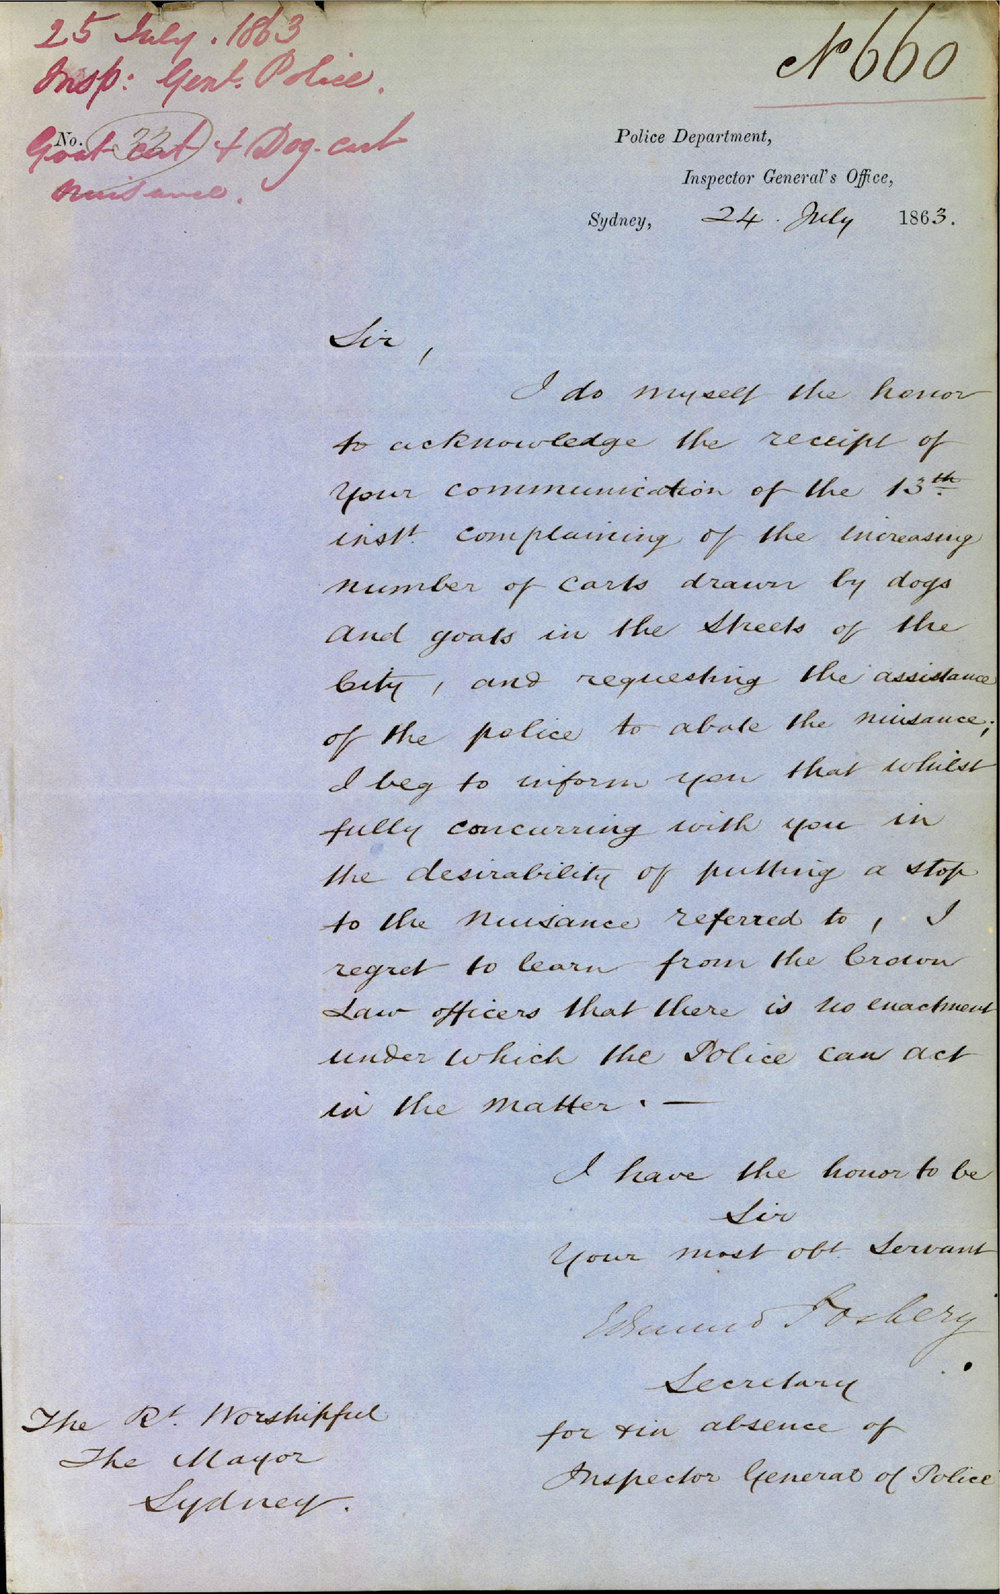 25 July. 1863
Insp: Genl. Police.
No.
Goat cart & Dog-cart
nuisance.
No 660
Police Department,
Inspector General's Office,
Sydney, 24. July 1863.
Sir,
I do myself the honor
to acknowledge the receipt of
your communication of the 13th
inst. complaining of the increasing
number of carts drawn by dogs
and goats in the streets of the
City, and requesting the assistance
of the police to abate the nuisance;
I beg to inform you that whilst
fully concurring with you in
the desirability of putting a stop
to the nuisance referred to, I
regret to learn from the Crown
Law officers that there is no enactment
under which the Police can act
in the matter. —
I have the honor to be
Sir
Your most obt. Servant
Edmund Fosbery
Secretary
for & in absence of
Inspector General of Police
The Rt. Worshipful
The Mayor
Sydney.